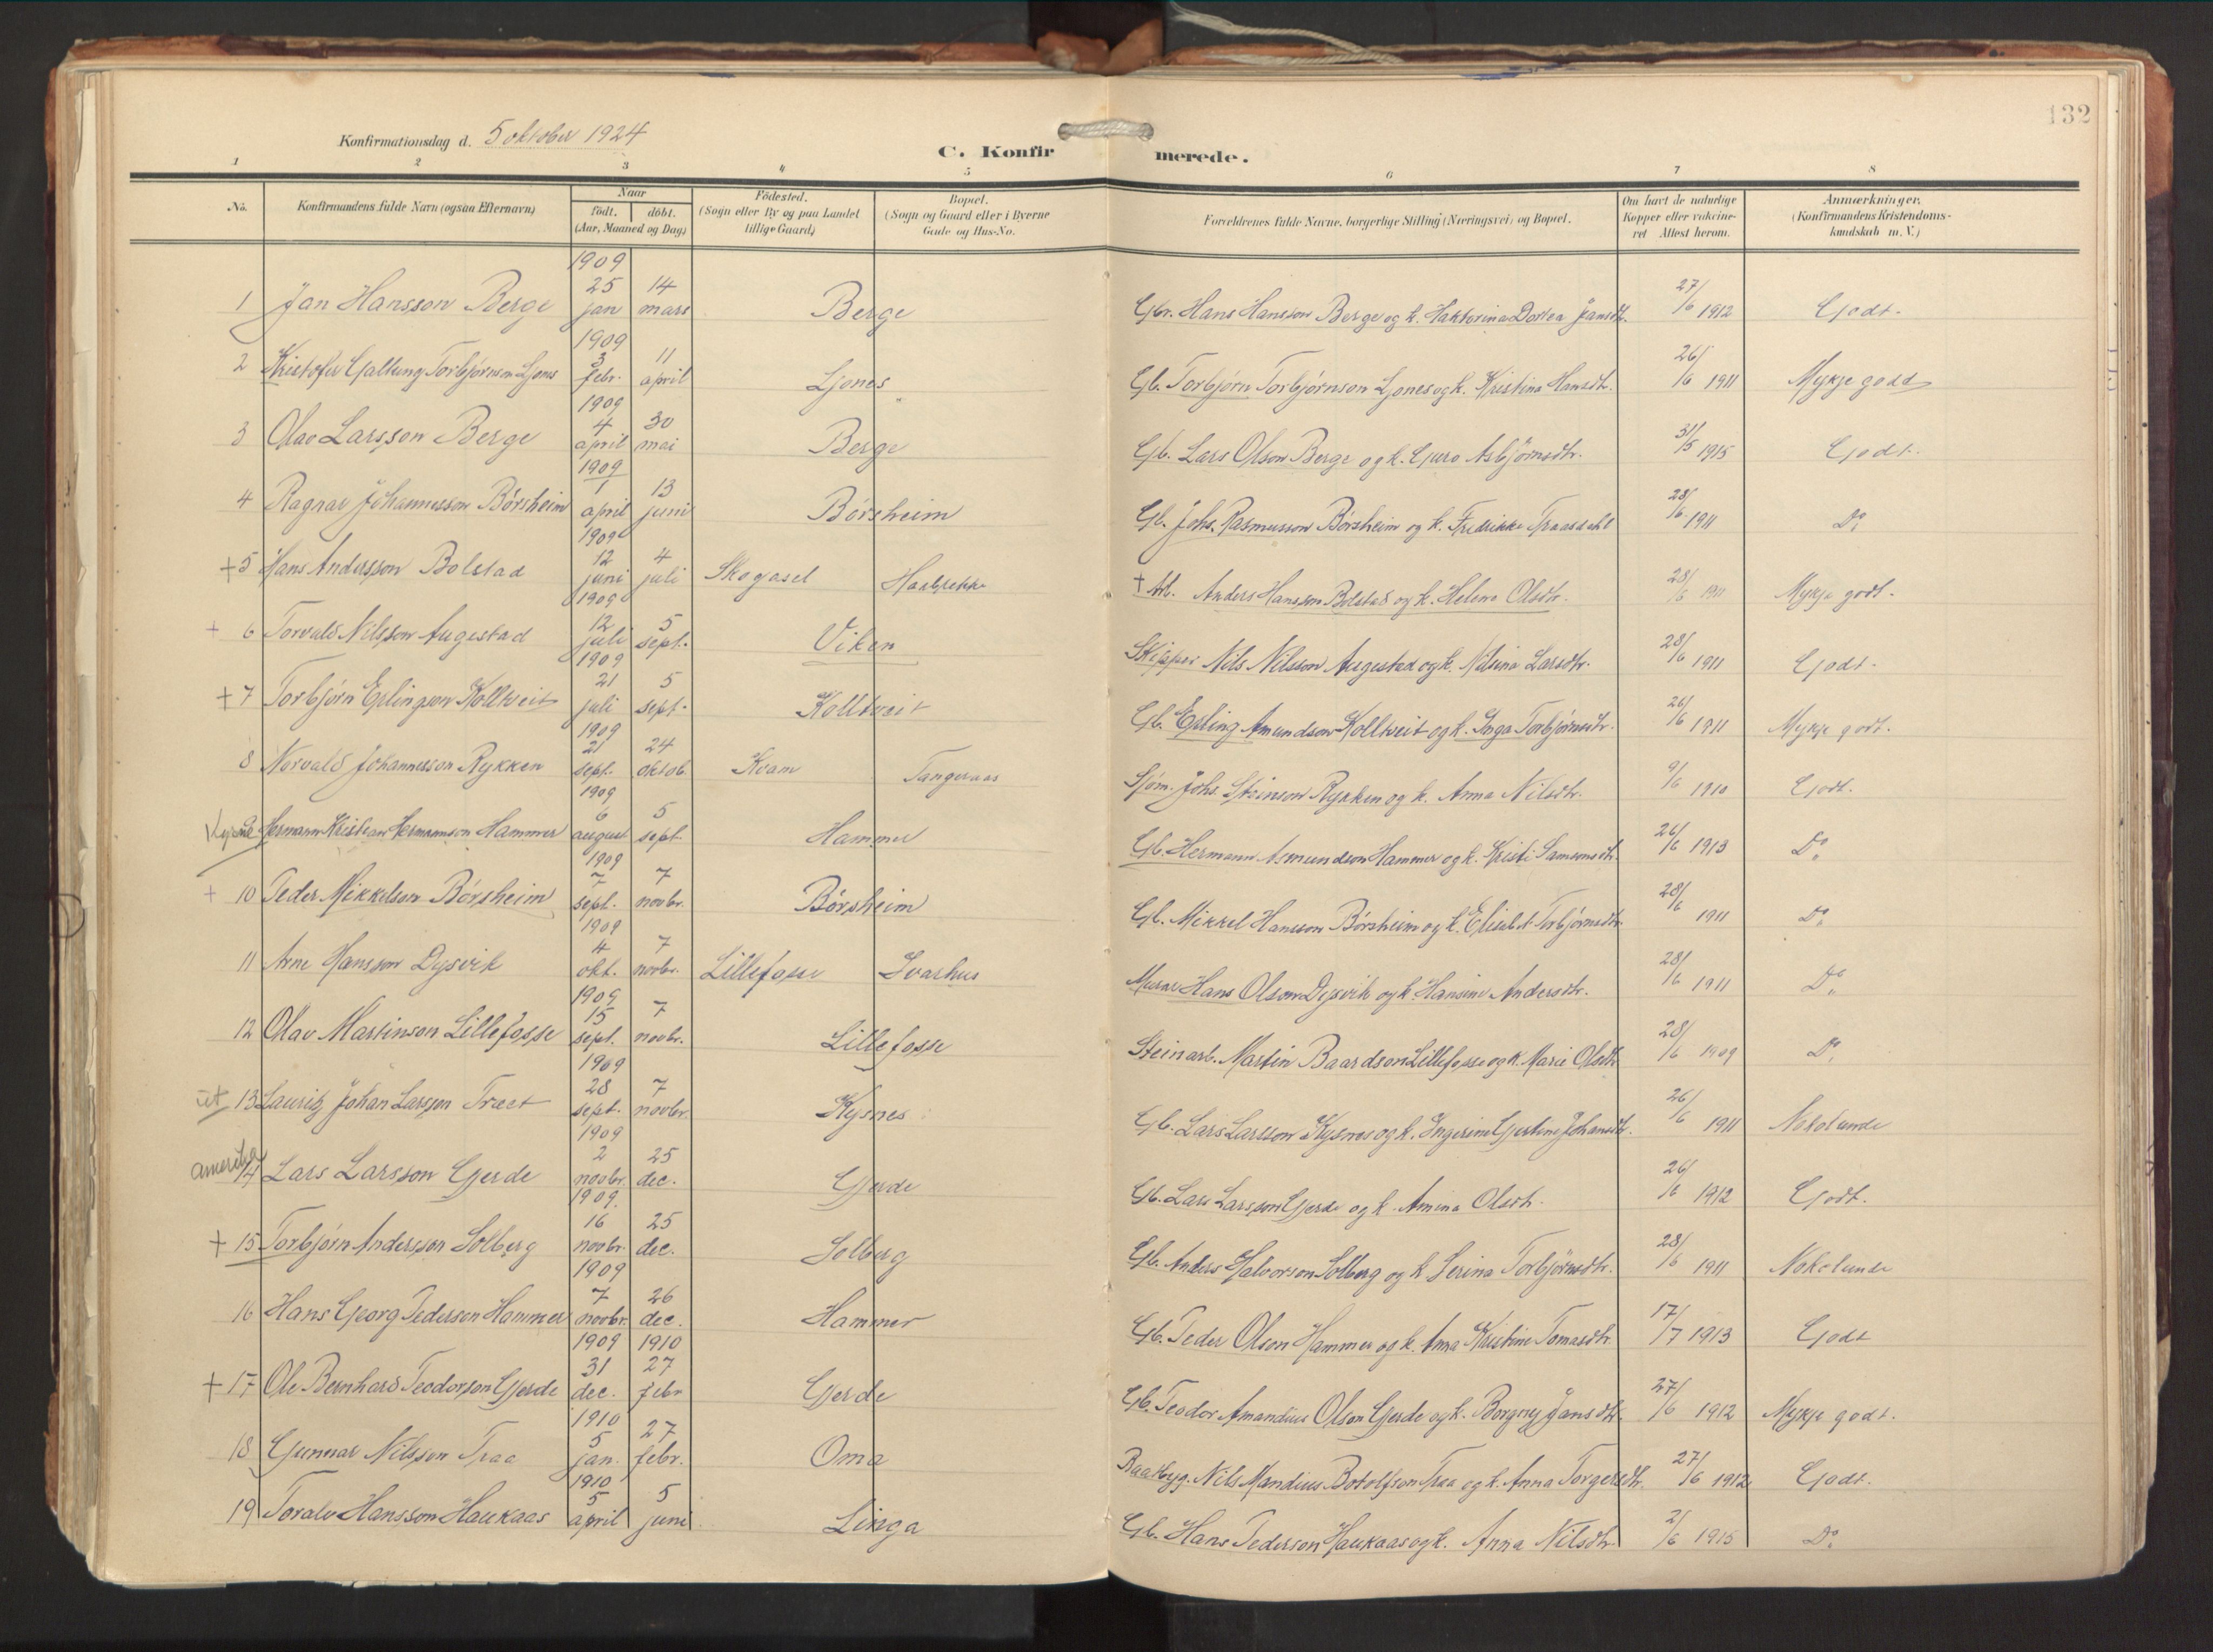 132
Konfirmationsdag d. 5 oktober 1924
C. Konfirmerede.
1 2 3 4 5 6 7 8
No. Konfirmandens fulde Navn (ogsaa Efternavn) Naar født. døbt. (Aar, Maaned og Dag) Födested. (Sogn eller By og paa Landet tillige Gaard) Bopæl. (Sogn og Gaard eller i Byerne Gade og Hus-No. Forældrenes fulde Navne, borgerlige Stilling (Næringsvei) og Bopæl. Om havt de naturlige Kopper eller vakcineret Attest herom. Anmærkninger. (Konfirmandens Kristendomskundskab m. V.)
1 Jan Hansson Berge 1909 25 jan 14 mars Berge Gbr. Hans Hansson Berge og k. Haktorina Dortea Jansdtr. 27/6 1912 Godt.
2 Kristofer Galtung Torbjørnson Ljones 1909 3 febr. 11 april Ljones Gb. Torbjørn Torbjørnson Ljones og k. Kristina Hansdtr. 26/6 1911 Mykje godt
3 Olav Larsson Berge 1909 4 april 30 mai Berge Gb. Lars Olson Berge og k. Guro Asbjörnsdtr. 31/5 1915 Godt.
4 Ragnar Johannesson Börsheim 1909 1 april 13 juni Börsheim Gb. Johs. Rasmusson Börsheim og k. Fredrikke Traasdahl 28/6 1911 Do
+ 5 Hans Andersson Bolstad 1909 12 juni 4 juli Skogasel + Arb. Anders Hansson Bolstad og k. Helena Olsdtr. 28/6 1911 Mykje godt.
+ 6 Torvald Nilsson Augestad 1909 12 juli 5 sept. Viken Skipper Nils Nilsson Augestad og k. Nilsina Larsdtr. 28/6 1911 Godt.
+ 7 Torbjörn Erlingson Kolltveit 1909 21 juli 5 sept. Kolltveit Gb. Erling Amundson Kolltveit og k. Inga Torbjörnsdtr. 26/6 1911 Mykje godt.
8 Norvald Johannesson Rykken 1909 21 sept. 24 oktob. Kvam Tangeraas Sjöm. Johs. Steinson Rykken og k. Anna Nilsdtr. 9/6 1910 Godt.
9 Hermann Kristian Hermannson Hammer 1909 6 august 5 sept. Hammer Gb. Hermann Asmundson Hammer og k. Kristi Samsonsdtr. 26/6 1913 Do
+ 10 Peder Mikkelson Börsheim 1909 7 sept. 7 novbr. Börsheim Gb. Mikkel Hansson Börsheim og k. Elisabet Torbjörnsdtr. 28/6 1911 Do
11 Arne Hansson Dysvik 1909 4 okt. 7 novbr. Lillefosse Svarhus Murar Hans Olson Dysvik og k. Hansine Andersdtr. 28/6 1911 Do
12 Olav Martinson Lillefosse 1909 15 sept. 7 novbr. Lillefosse Steinarb. Martin Baardson Lillefosse og k. Marie Olsdtr 28/6 1909 Do
ut 13 Lauritz Johan Larsson Træet 1909 28 sept. 7 novbr. Kysnes Gb. Lars Larsson Kysnes og k. Ingerine Gjertine Johansdtr. 26/6 1911 Nokolunde
amerika 14 Lars Larsson Gjerde 1909 2 novbr. 25 dec. Gjerde Gb. Lars Larsson Gjerde og k. Amina Olsdtr. 26/6 1912 Godt.
+ 15 Torbjörn Andersson Solberg 1909 16 novbr. 25 dec. Solberg Gb. Anders Halvorson Solberg og k. Serina Torbjörnsdtr. 28/6 1911 Nokolunde
16 Hans Georg Pederson Hammer 1909 7 novbr. 26 dec. Hammer Gb. Peder Olson Hammer og k. Anna Kristine Tomasdtr. 17/7 1913 Godt
+ 17 Ole Bernhard Teodorson Gjerde 1909 31 dec. 1910 27 febr Gjerde Gb. Teodor Amandius Olson Gjerde og k. Borgny Jansdtr. 27/6 1912 Mykje godt.
18 Gunnar Nilsson Traa 1910 5 jan. 27 febr. Oma Baatbyg. Nils Mandius Botolfson Traa og k. Anna Torgersdtr. 27/6 1912 Godt.
19 Toralv Hansson Haukaas 1910 5 april 5 juni Linga Gb. Hans Pederson Haukaas og k. Anna Nilsdtr. 2/6 1915 Do